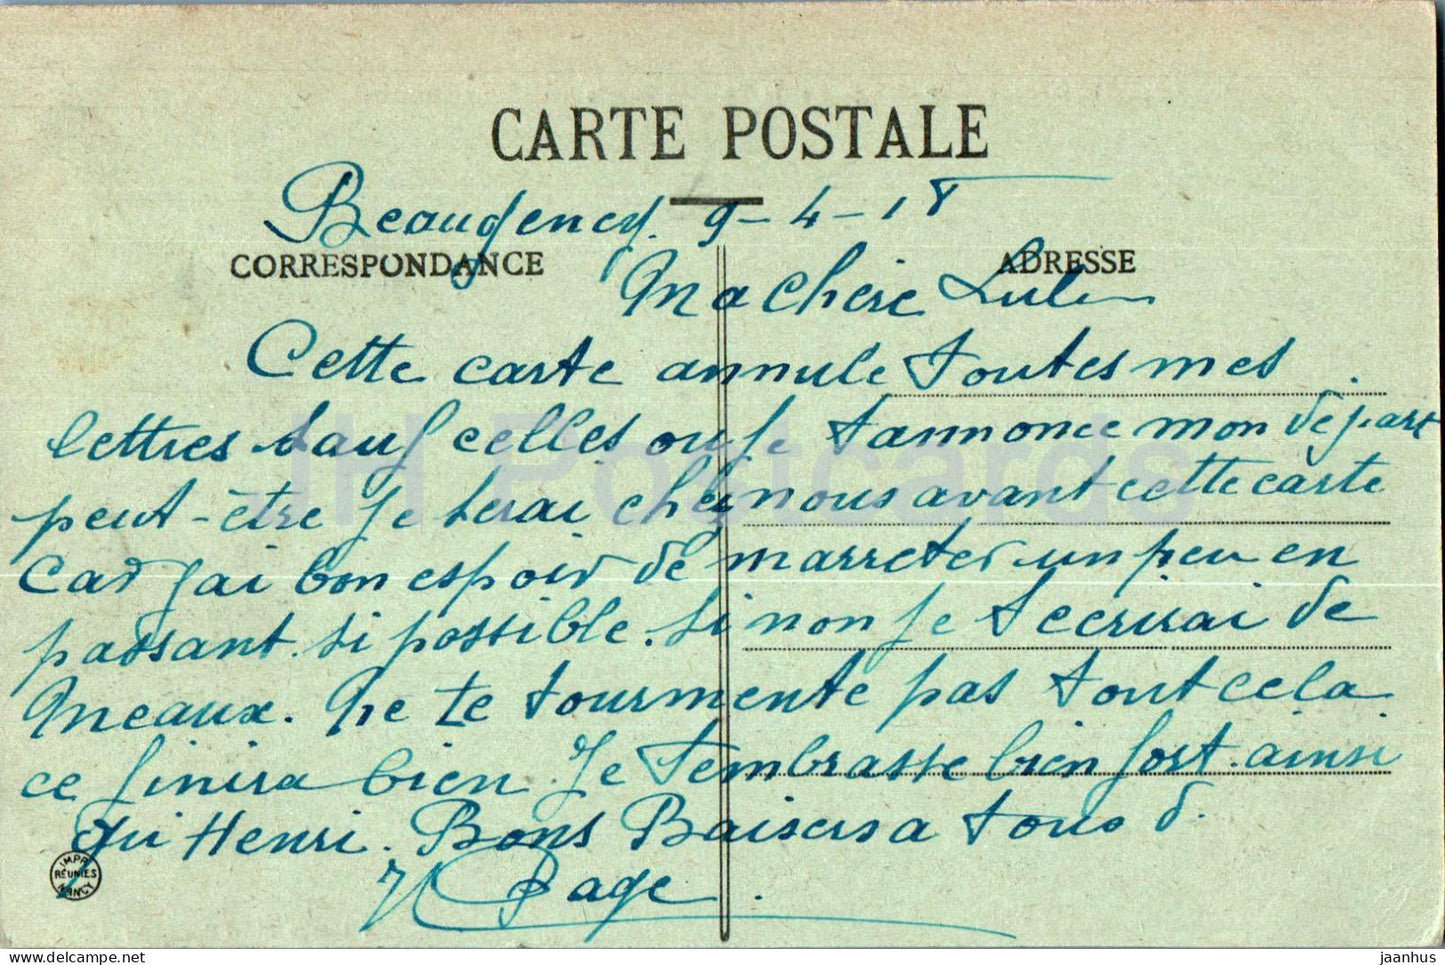 CARTE POSTALE
Beaugency. 9-4-18
CORRESPONDANCE
ADRESSE
Ma chère Lulu
Cette carte annule toutes mes
lettres sauf celles ou je t'annonce mon départ
peut-être je serai chez nous avant cette carte
Car j'ai bon espoir de marreter un peu en
passant si possible. Si non je t ecrirai de
Meaux. Ne te tourmente pas tout cela
ce finira bien. Je t'embrasse bien fort. ainsi
qui Henri. Bons Baisers a tous d.
H Page.
IMPR
RÉUNIES
NANCY
JH Postcards
delcampe.net
jaanhus